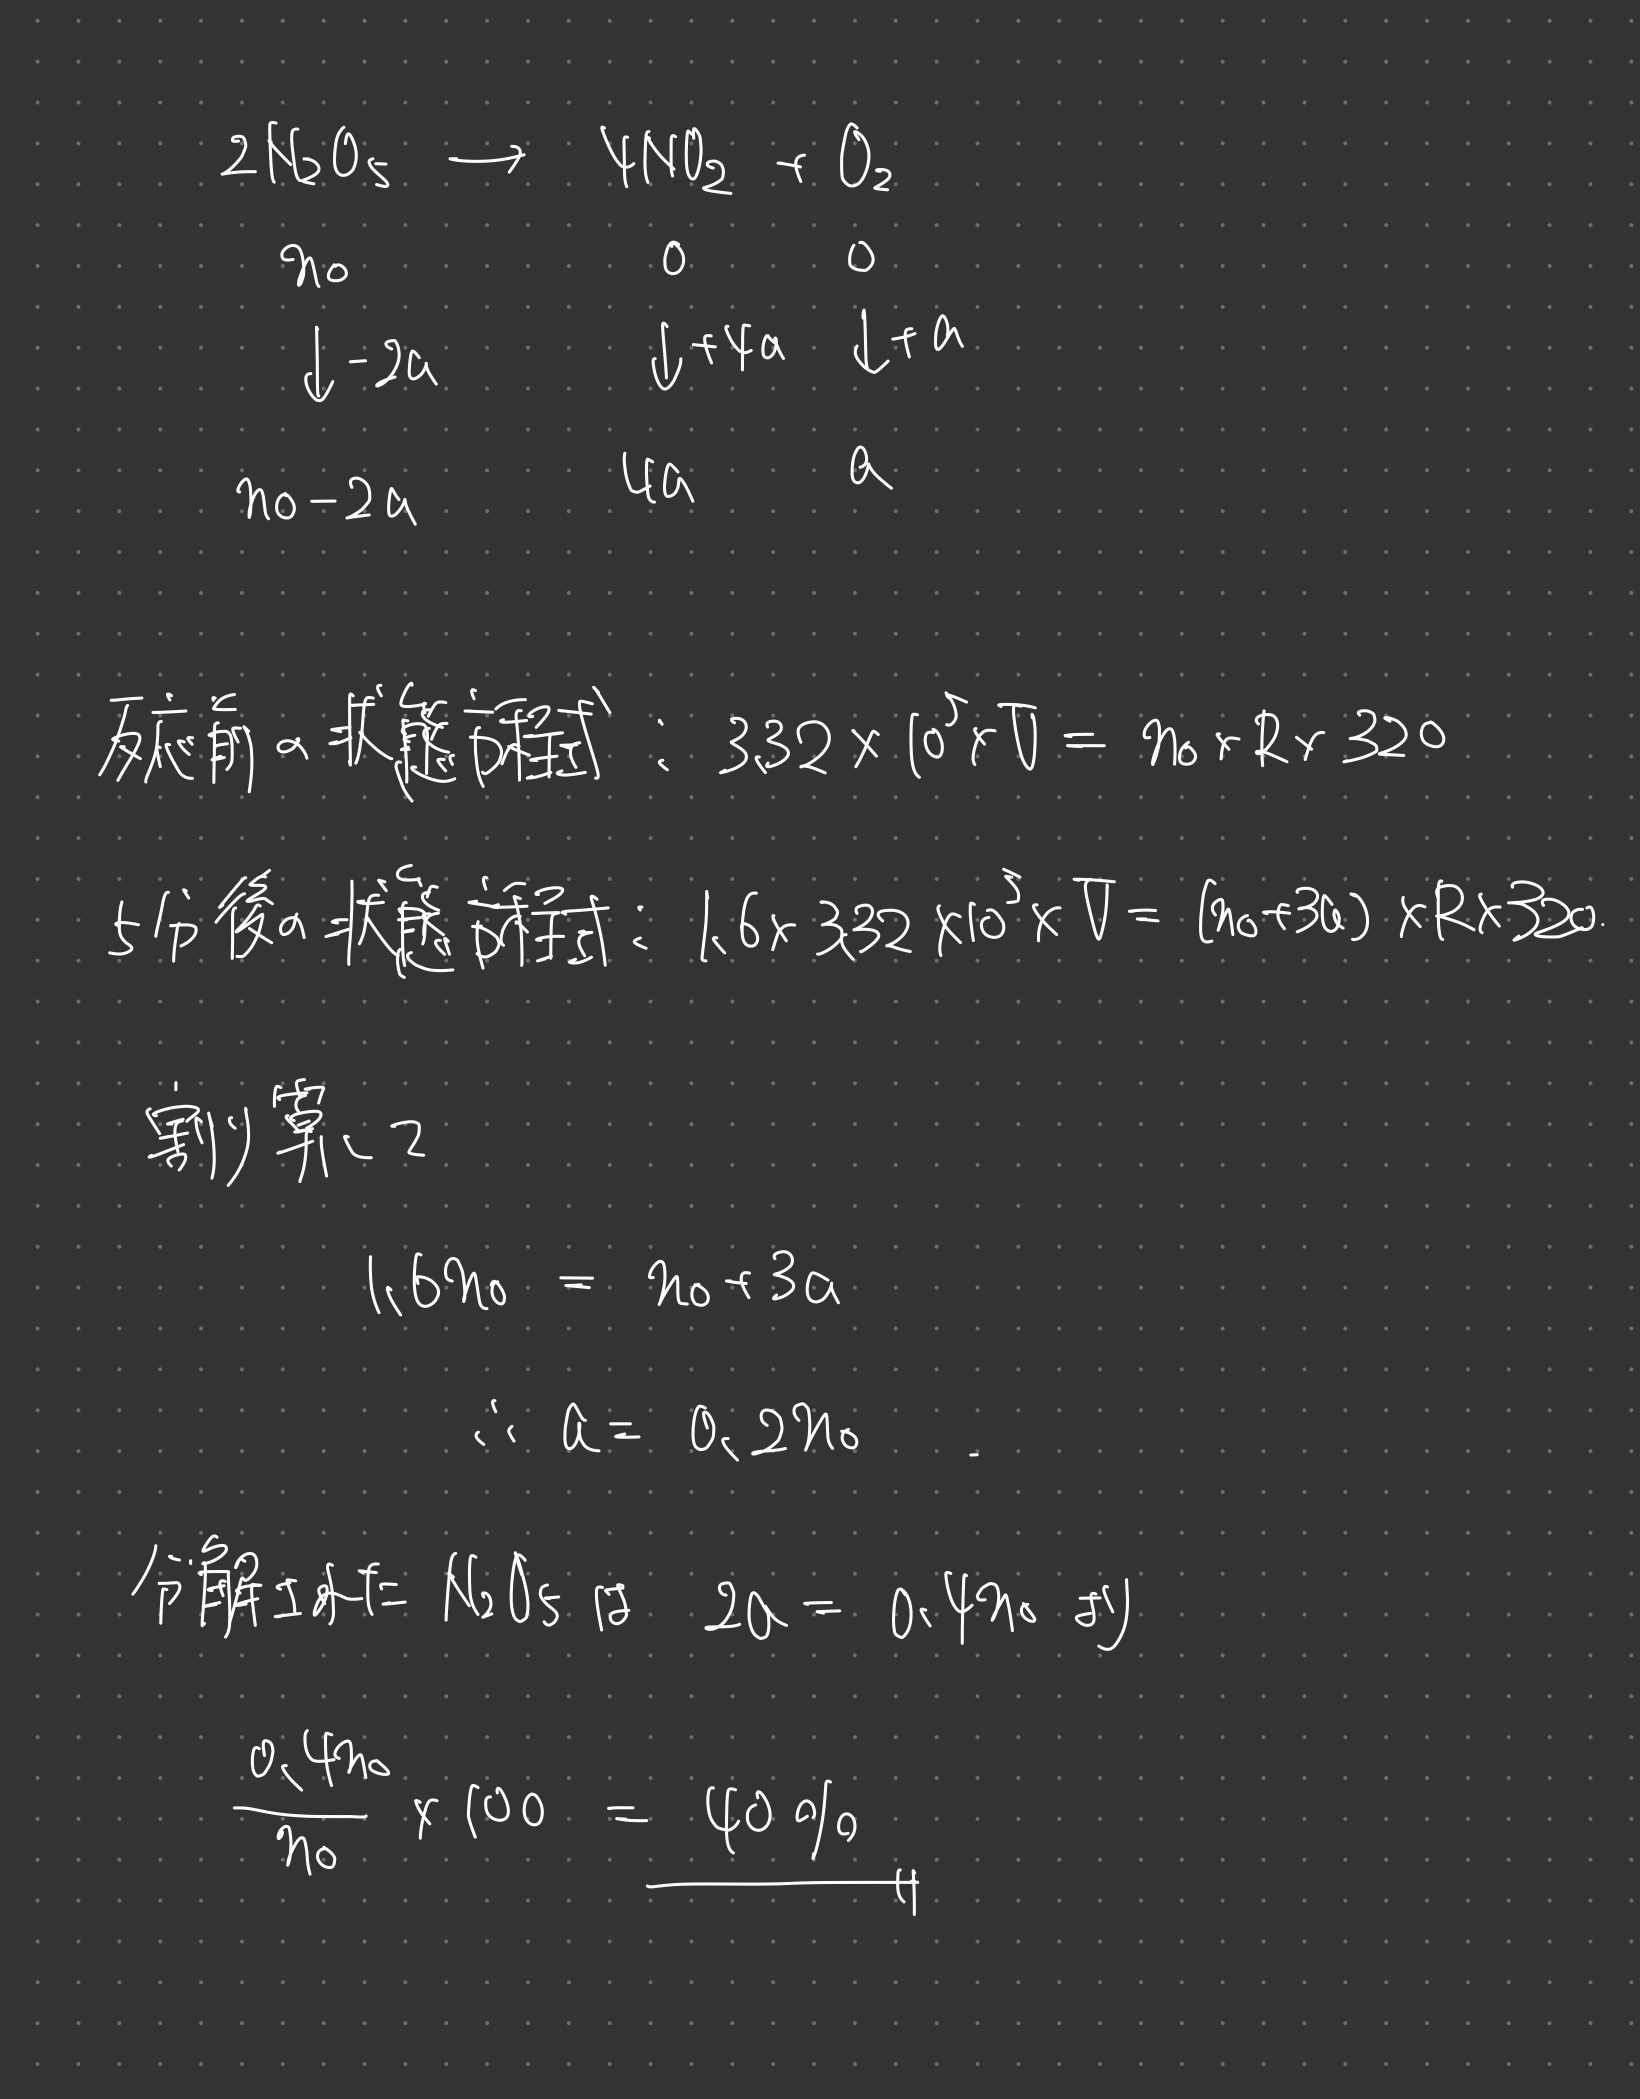 2N₂O₅ → 4NO₂ + O₂
n₀ 0 0
↓-2a ↓+4a ↓+a
n₀-2a 4a a
反応前の状態方程式: 3.32×10⁵×V = n₀×R×320
5分後の状態方程式: 1.6×3.32×10⁵×V = (n₀+3a)×R×320.
割り算して
1.6n₀ = n₀+3a
∴ a = 0.2n₀
分解された N₂O₅は 2a = 0.4n₀ より
0.4n₀/n₀ ×100 = 40%